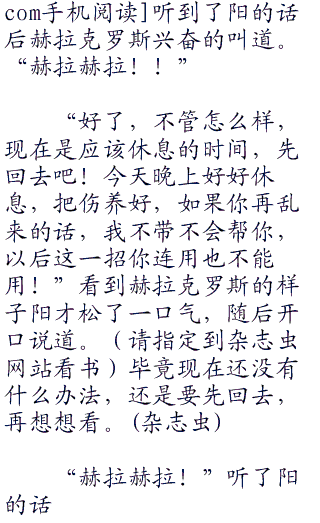 com手机阅读]听到了阳的话
后赫拉克罗斯兴奋的叫道。
“赫拉赫拉！！”
“好了，不管怎么样，
现在是应该休息的时间，先
回去吧！今天晚上好好休
息，把伤养好，如果你再乱
来的话，我不带不会帮你，
以后这一招你连用也不能
用！”看到赫拉克罗斯的样
子阳才松了一口气，随后开
口说道。（请指定到杂志虫
网站看书）毕竟现在还没有
什么办法，还是要先回去，
再想想看。(杂志虫)
“赫拉赫拉！”听了阳
的话